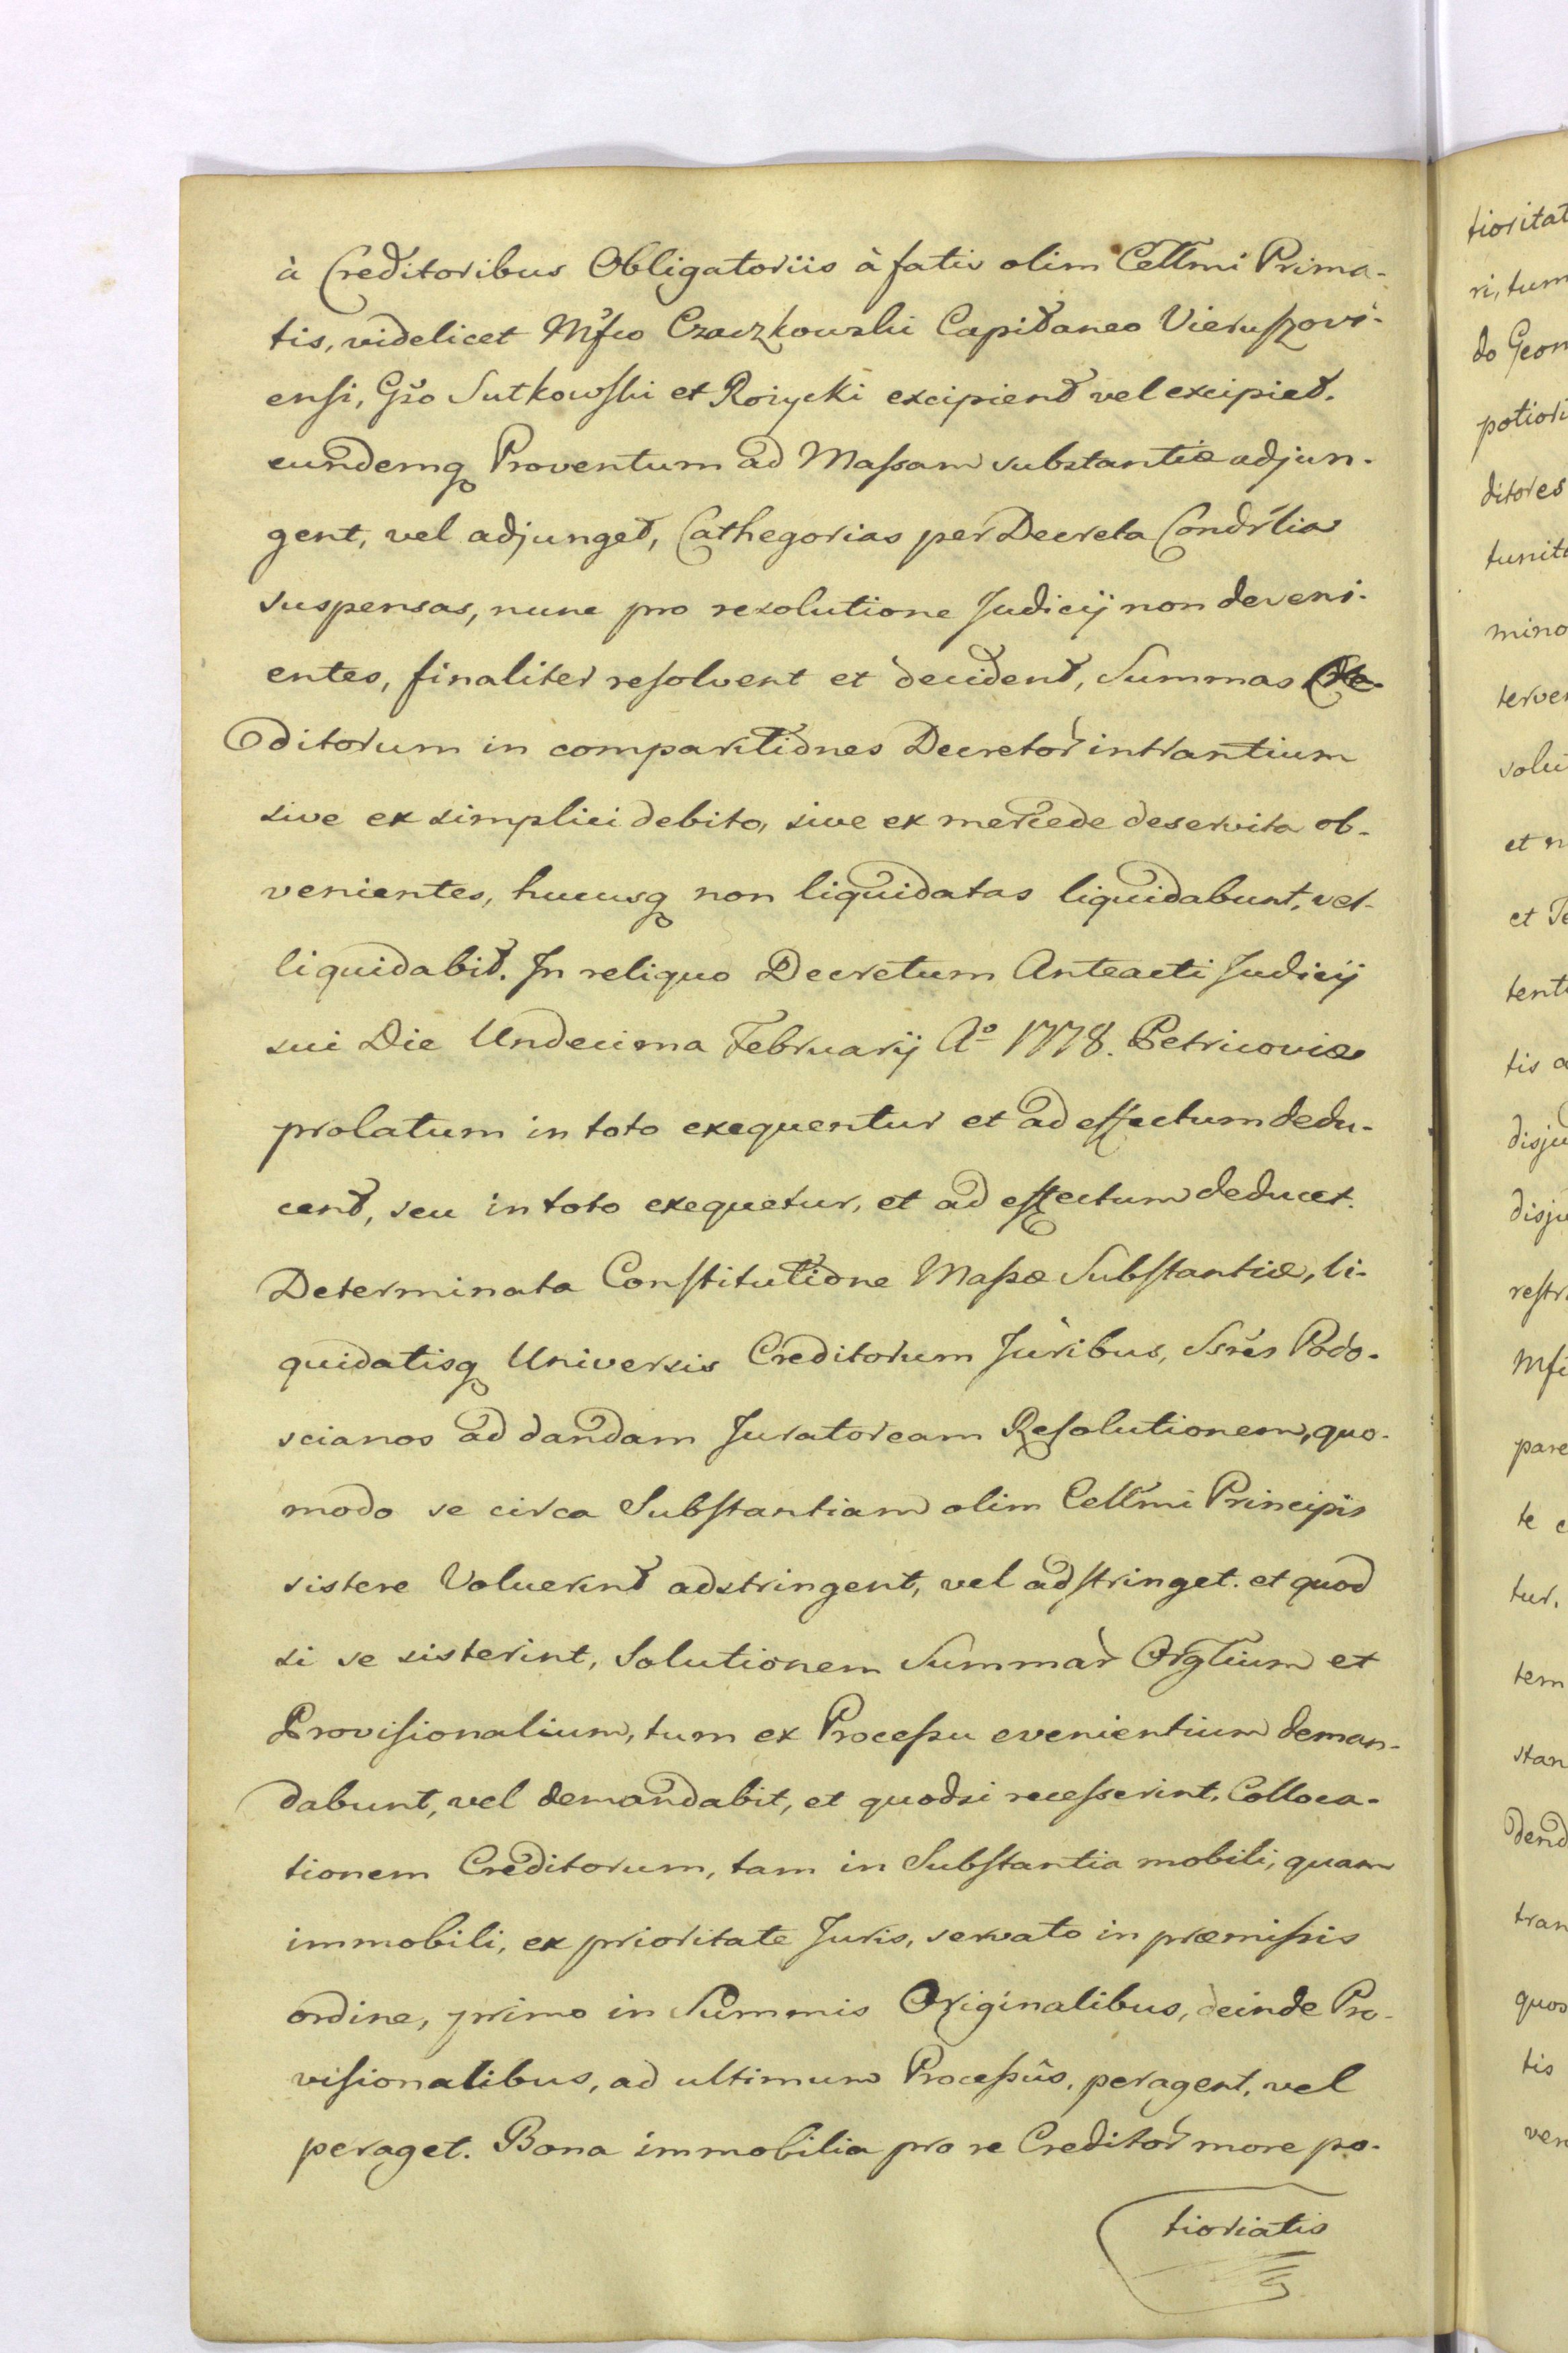 à Creditoribus Obligatoriis à fatis olim Cellmi Prima-
tis, videlicet Mfco Czaczkowski Capitaneo Vieruszovi-
ensi, Gso Sutkowski et Rożycki excipient vel excipiet.
eundemq Proventum ad Massam substantiæ adjun-
gent, vel adjunget, Cathegorias per Decreta Condrlia
suspensas, nunc pro resolutione Judicij non deveni-
entes, finaliter resolvent et decident, Summas Cre-
ditorum in compartitiones Decretor intrantium
sive ex simplici debito, sive ex mercede deservita ob-
venientes, hucusq non liquidatas liquidabunt, vel
liquidabit. In reliquo Decretum Anteacti Judicij
sui Die Undecima Februarij Ao 1778. Petricoviæ
prolatum in toto exequentur et ad effectum dedu-
cent, seu in toto exequetur, et ad effectum deducet.
Determinata Constitutione Massæ Substantiæ, li-
quidatisq Universis Creditorum Juribus, Ssres Podo-
scianos ad dandam Juratoream Resolutionem, quo-
modo se circa Substantiam olim Cellmi Principis
sistere Voluerint adstringent, vel adstringet. et quod
si se sisterint, Solutionem Summar Orglium et
Provisionalium, tum ex Processu evenientium deman-
dabunt, vel demandabit, et quodsi recesserint, Colloca-
tionem Creditorum, tam in Substantia mobili, quam
immobili, ex prioritate Juris, servato in præmissis
ordine, primo in Summis Originalibus, deinde Pro-
visionalibus, ad ultimum Processûs, peragent, vel
peraget. Bona immobilia pro re Creditor more po-
tioriatis
tioritat
ri, tum
do Geom
potiori
ditores
tunita
mino
terven
solu
et n
et Te
tent
tis a
disju
disju
restr
Mfi
pare
te c
tur.
tem
stan
dend
tran
quos
tis
ven